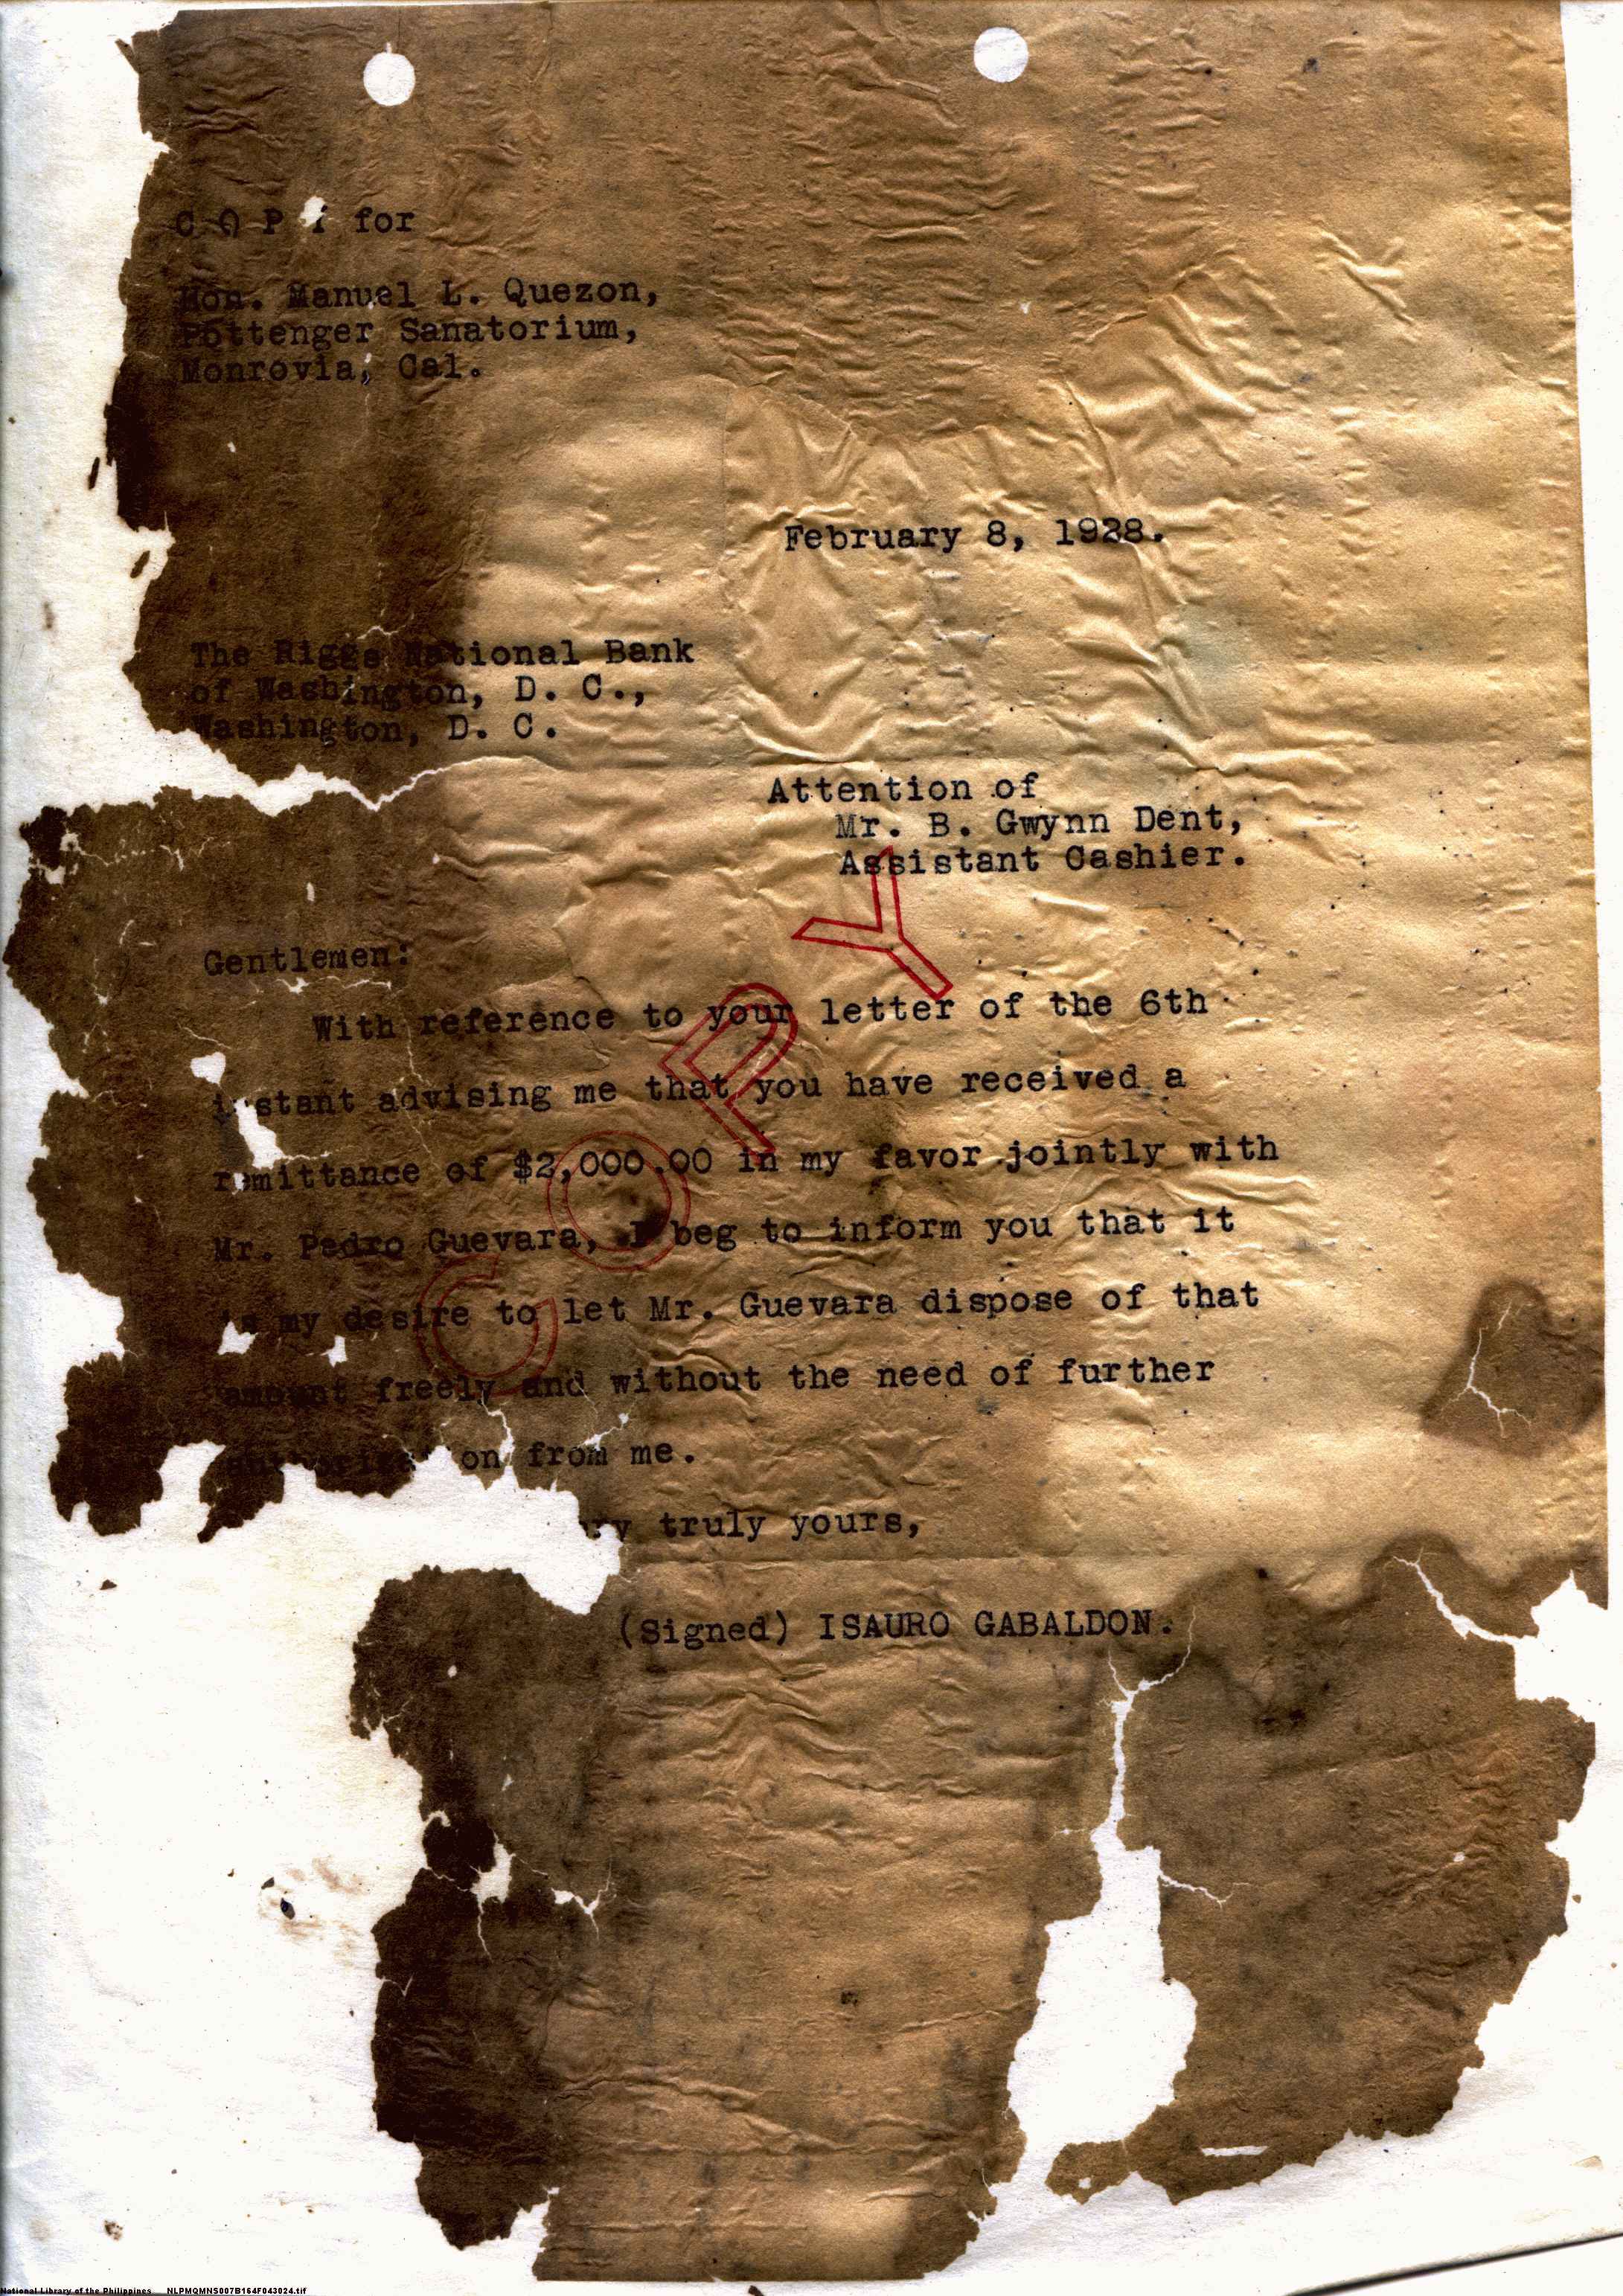 C O P Y for
Hon. Manuel L. Quezon,
Pottenger Sanatorium,
Monrovia, Cal.
February 8, 1928.
The Riggs National Bank
of Washington, D. C.,
Washington, D. C.
Attention of
Mr. B. Gwynn Dent,
Assistant Cashier.
Gentlemen:
With reference to your letter of the 6th
instant advising me that you have received a
remittance of $2,000.00 in my favor jointly with
Mr. Pedro Guevara, I beg to inform you that it
is my desire to let Mr. Guevara dispose of that
amount freely and without the need of further
authorization from me.
Very truly yours,
(Signed) ISAURO GABALDON.
COPY
National Library of the Philippines NLPMQMNS007B164F043024.tif